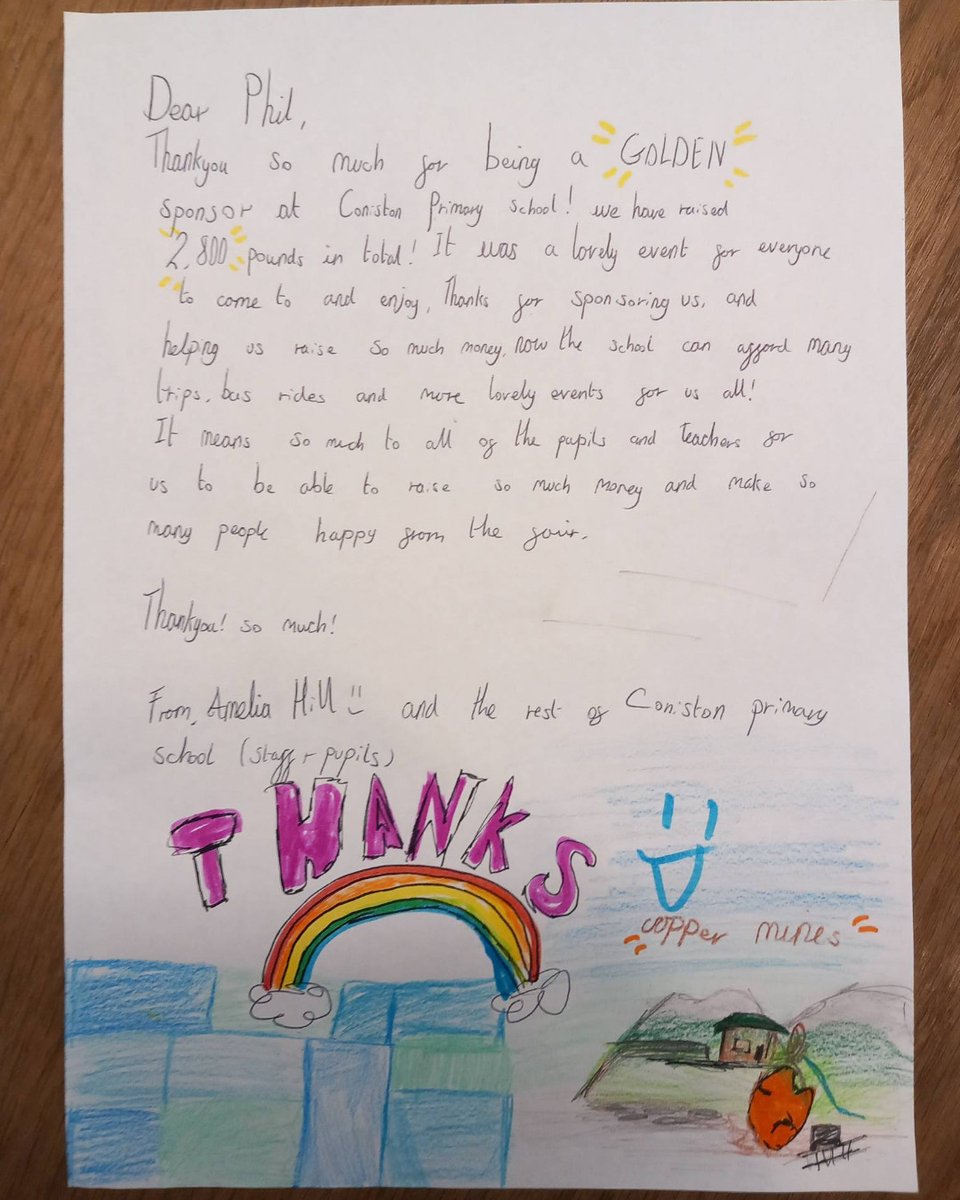 Dear Phil,
Thankyou so much for being a GOLDEN
sponsor at Coniston Primary school! we have raised
2,800 pounds in total! It was a lovely event for everyone
to come to and enjoy, Thanks for sponsoring us, and
helping us raise so much money, now the school can afford many
trips, bus rides and more lovely events for us all!
It means so much to all of the pupils and teachers for
us to be able to raise so much money and make so
many people happy from the fair.
Thankyou! so much!
From, Amelia Hill and the rest of Coniston primary
school (staff + pupils)
THANKS
copper mines